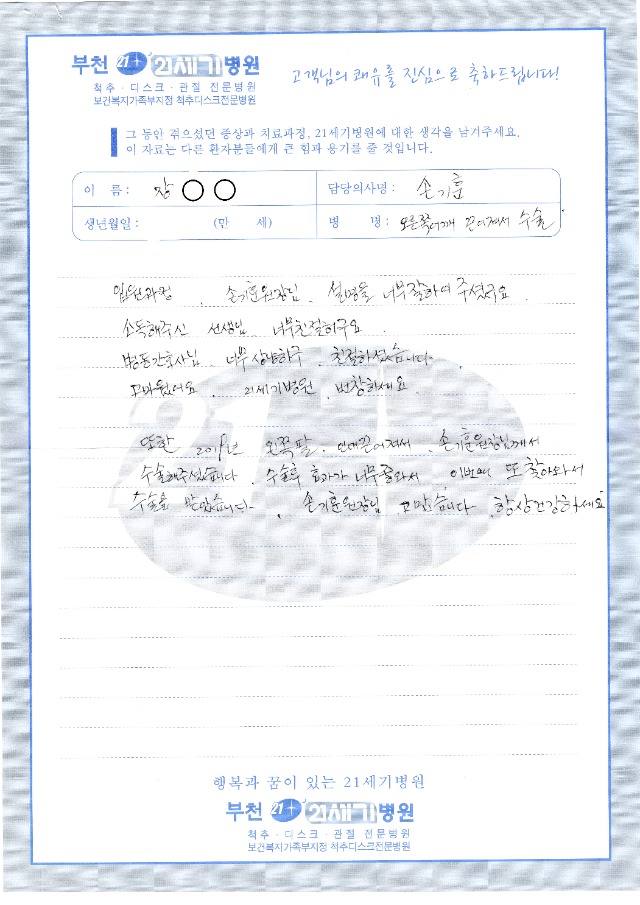 부천 21+ 21세기병원
척추 · 디스크 · 관절 전문병원
보건복지가족부지정 척추디스크전문병원
고객님의 쾌유를 진심으로 축하드립니다!
그 동안 겪으셨던 증상과 치료과정, 21세기병원에 대한 생각을 남겨주세요.
이 자료는 다른 환자분들에게 큰 힘과 용기를 줄 것입니다.
이 름 : 장 ○ ○ 담당의사명 : 손기훈
생년월일 : (만 세) 병 명 : 오른쪽어깨 끈어져서 수술
입원과정 . 손기훈원장님 . 설명을 너무잘하여 주셨구요
소독해주신 선생님 너무친절하구요
병동간호사님 너무 상냥하구 친절하셨습니다.
고마웠어요 . 21세기병원 번창하세요
또한 2019년 왼쪽팔 . 끈어져서 손기훈원장님께서
수술해주셨습니다 . 수술후 효과가 너무좋와서 이번에 또 찾아와서
수술을 받았습니다 . 손기훈원장님 고맙습니다 항상건강하세요
행복과 꿈이 있는 21세기병원
부천 21+ 21세기병원
척추 · 디스크 · 관절 전문병원
보건복지가족부지정 척추디스크전문병원